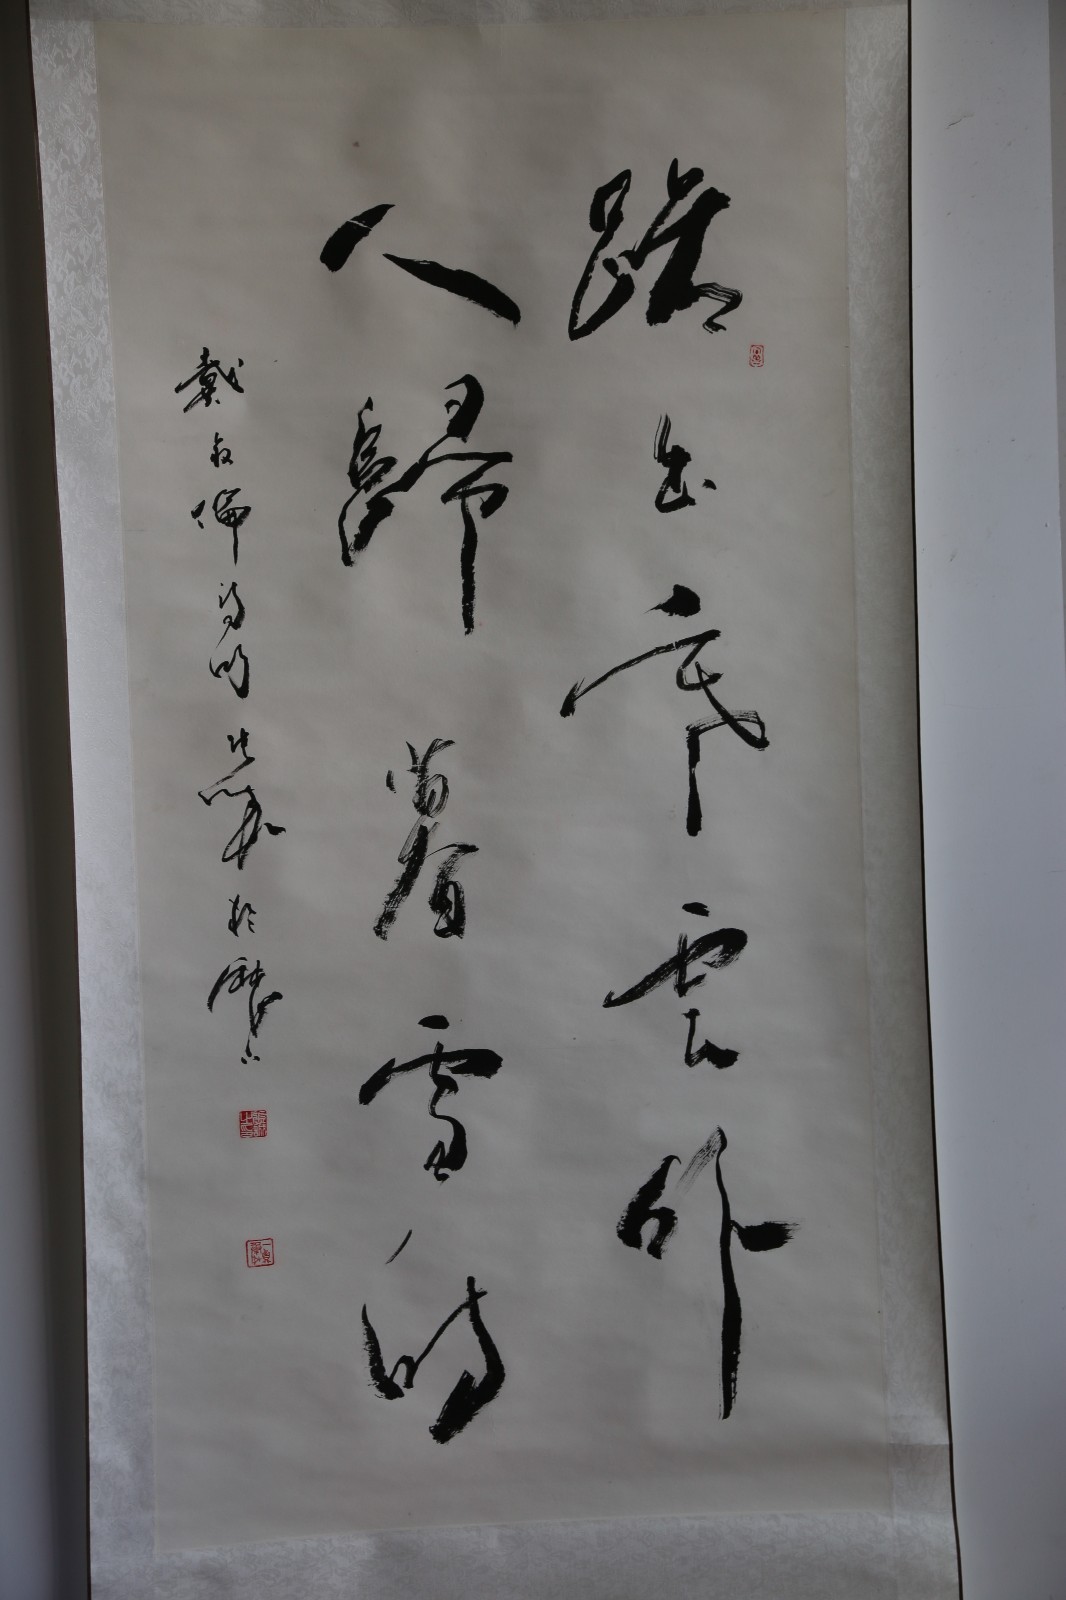 路出寒雲外
人歸暮雪時
戴叔倫詩句